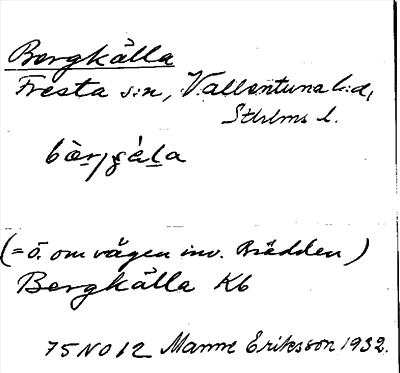 Bergkälla
Fresta s:n, Vallentuna h:d,
Sthlms l.
(= ö. om vägen inv. Brädden)
Bergkälla Kb
75 NO 12 Manne Eriksson 1932.